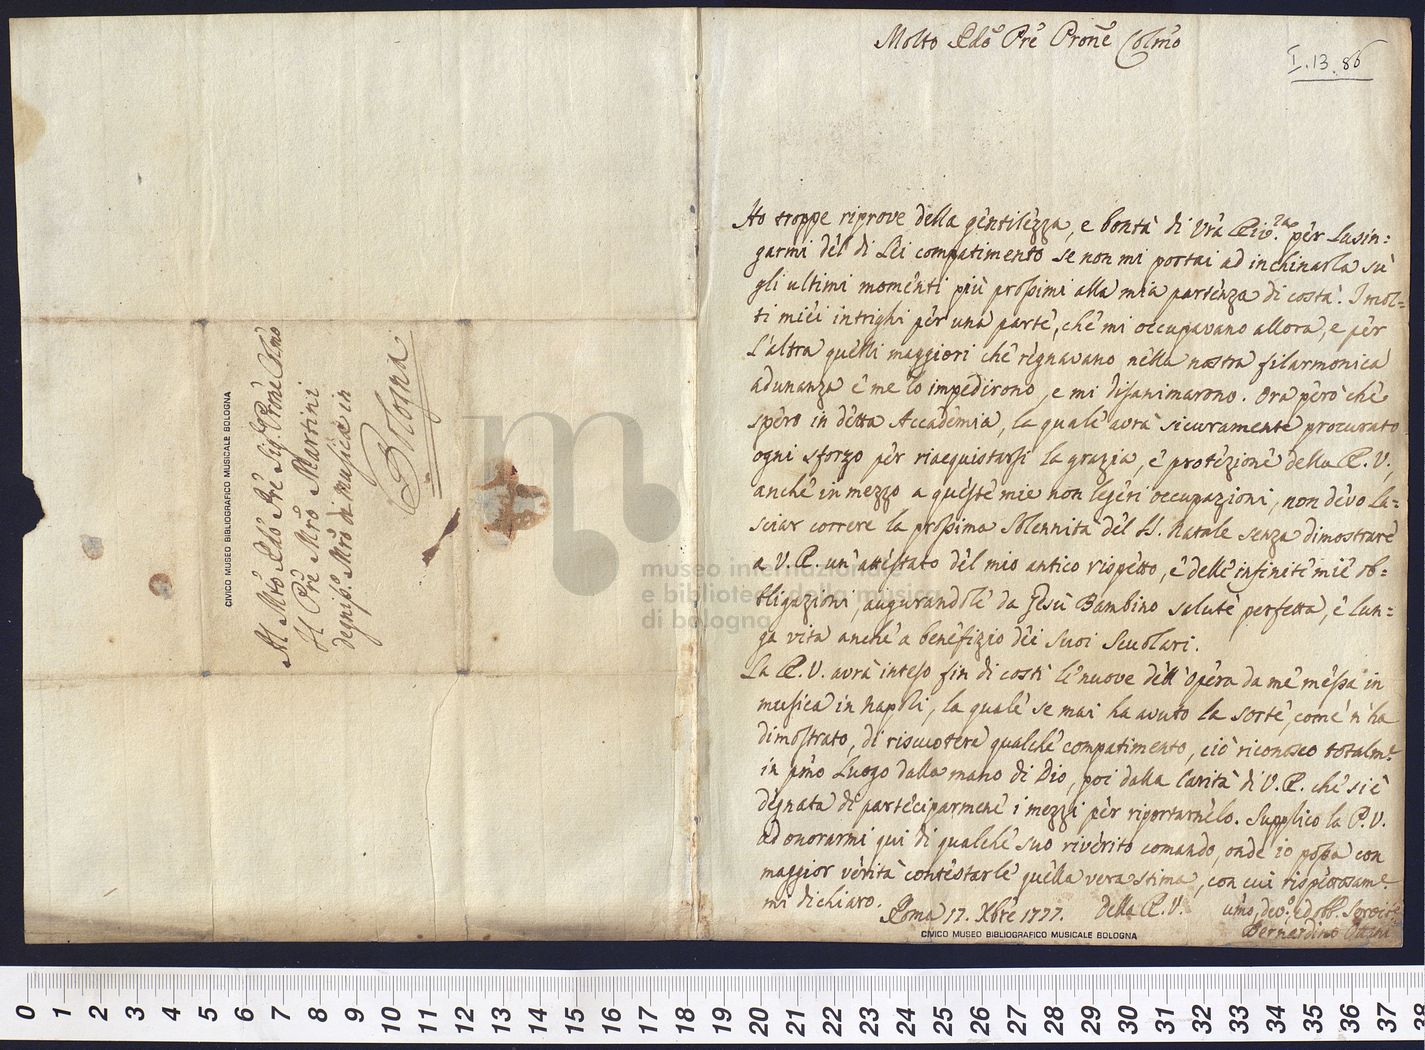 Al Mto Rdo Pre Sig. Prone Colmo
Il Pre Mro Martini
degniss. Mro di musica in
Bologna
CIVICO MUSEO BIBLIOGRAFICO MUSICALE BOLOGNA
Molto Rdo Pre Prone Colmo
I.13.86
Ho troppe riprove della gentilezza, e bontà di Vra Riv.za per lusin=
garmi del di Lei compatimento se non mi portai ad inchinarla sù
gli ultimi momenti più prossimi alla mia partenza di costà. I mol=
ti miei intrighi per una parte, che mi occupavano allora, e per
l'altra quelli maggiori che regnavano nella nostra filarmonica
adunanza e me lo impedirono, e mi disanimarono. Ora però che
spero in detta Accademia, la quale avrà sicuramente procurato
ogni sforzo per riaequistarsi la grazia, e protezione della R. V.,
anche in mezzo a queste mie non legeri occupazioni, non devo la=
sciar correre la prossima solennità del S. Natale senza dimostrare
a V. R. un' attestato del mio antico rispetto, e delle infinite mie ob=
bligazioni, augurandole da Gesù Bambino salute perfetta, e lun=
ga vita anche a benefizio dei suoi scuolari.
La R. V. avrà inteso fin di costì le nuove dell' Opera da me messa in
musica in Napoli, la quale se mai ha avuto la sorte, come n' ha
dimostrato, di riscuotere qualche compatimento, ciò riconosco totalme
in pmo luogo dalla mano di Dio, poi dalla Carità di V. R. che si è
degnata di parteciparmene i mezzi per riportarnelo. Supplico la P. V.
ad onorarmi qui di qualche suo riverito comando, onde io possa con
maggior verità contestarle quella vera stima, con cui rispettosame
mi dichiaro.
Roma 17. Xbre 1777. Della R. V. umo, devo. ed obb. Servire
Bernardino Ottani
CIVICO MUSEO BIBLIOGRAFICO MUSICALE BOLOGNA
museo internazionale
e biblioteca della musica
di bologna
0 1 2 3 4 5 6 7 8 9 10 11 12 13 14 15 16 17 18 19 20 21 22 23 24 25 26 27 28 29 30 31 32 33 34 35 36 37 38